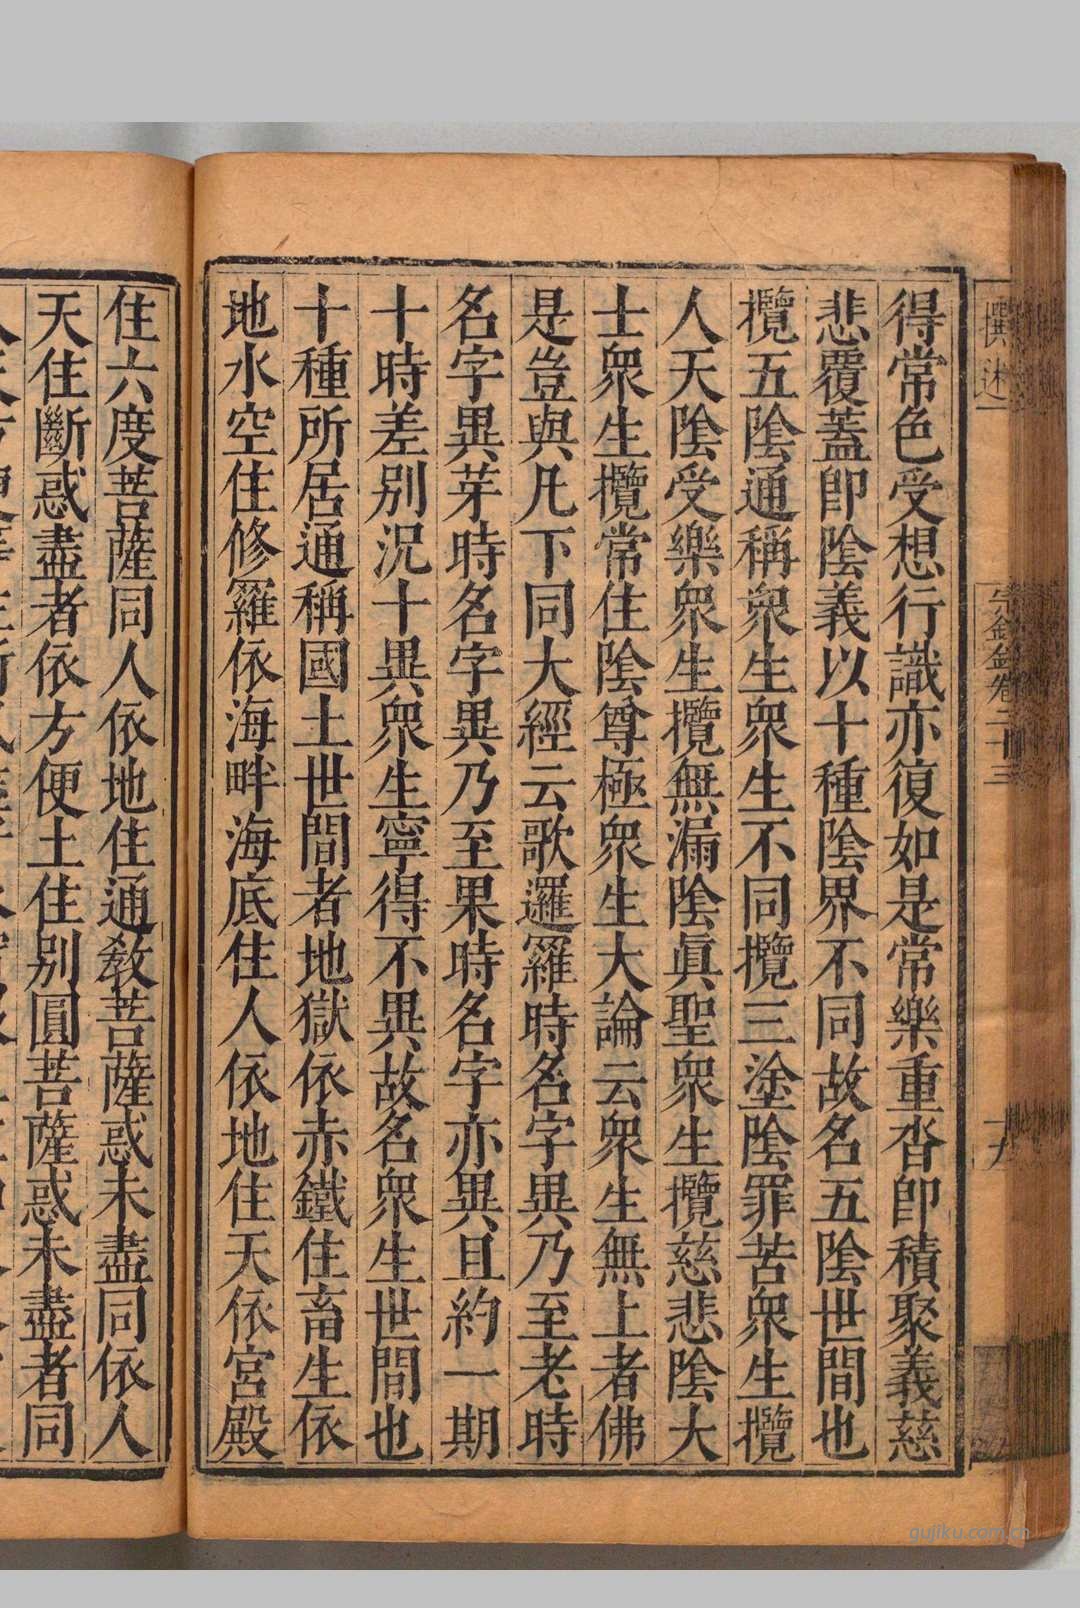 撰述一
宗鏡錄卷二十三
十九
得常色受想行識亦復如是常樂重沓卽積聚義慈
悲覆蓋卽陰義以十種陰界不同故名五陰世間也
攬五陰通稱衆生衆生不同攬三塗陰罪苦衆生攬
人天陰受樂衆生攬無漏陰眞聖衆生攬慈悲陰大
士衆生攬常住陰尊極衆生大論云衆生無上者佛
是豈與凡下同大經云歌邏羅時名字異乃至老時
名字異芽時名字異乃至果時名字亦異且約一期
十時差別況十異衆生寧得不異故名衆生世間也
十種所居通稱國土世間者地獄依赤鐵住畜生依
地水空住修羅依海畔海底住人依地住天依宮殿
住六度菩薩同人依地住通教菩薩惑未盡同依人
天住斷惑盡者依方便土住別圓菩薩惑未盡者同
gujiku.com.cn